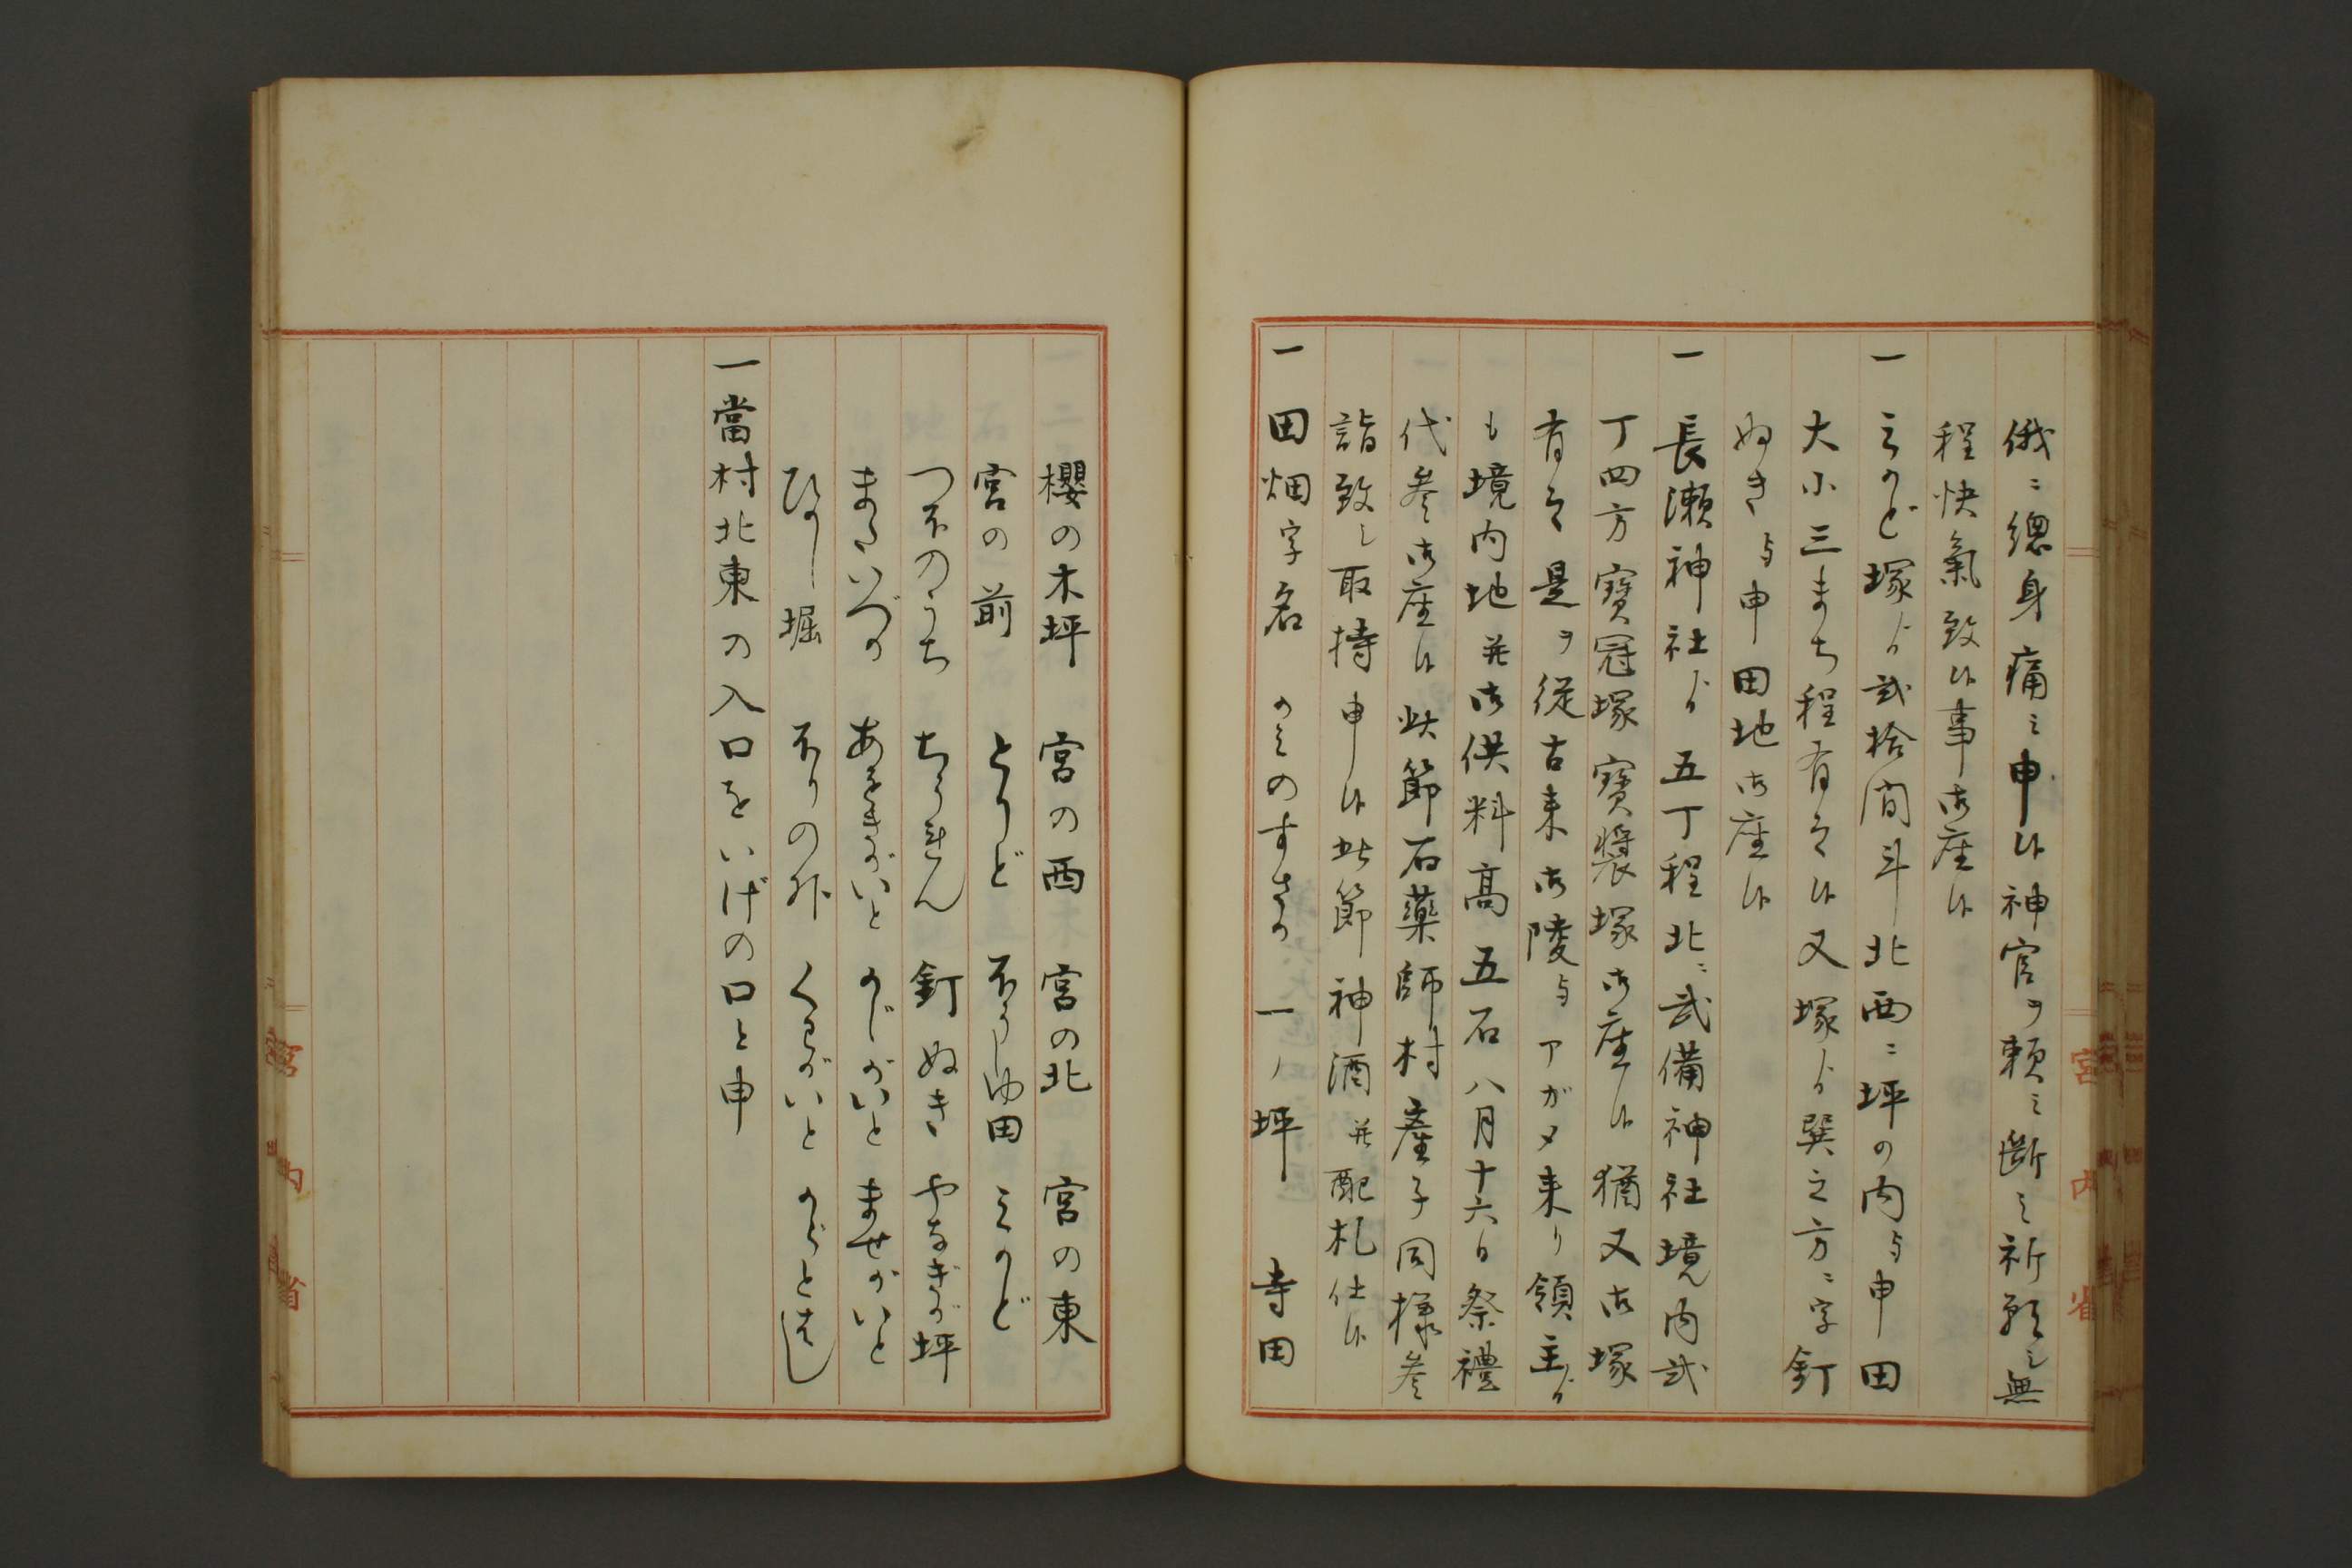 俄ニ總身痛ミ申候神官ヲ頼ミ斷ミ祈願シ無
程快氣致候事御座候
一 みかど塚ゟ貳拾間斗北西ニ坪の内与申田
大小三まち程有之候又塚ゟ巽之方ニ字釘
ぬき与申田地御座候
一 長瀬神社ゟ五丁程北ニ武備神社境内貳
丁四方寶冠塚寶裳塚御座候猶又御塚
有之是ヲ從古来御陵与アガメ来り領主ゟ
も境内地并御供料高五石八月十六日祭禮
代参御座候此節石薬師村産子同様参
詣致シ取持申候此節神酒并配札仕候
一 田畑字名 かミのすさか 一ノ坪 寺田
櫻の木坪 宮の西 宮の北 宮の東
宮の前 とりど ほうしゆ田 みかど
つぼのうち ちうれん 釘ぬき やなぎが坪
まついづか あをきがいと かじがいと ませがいと
ひかし堀 ほりの外 くるがいと からとはし
一當村北東の入口をいげの口と申
宮内省